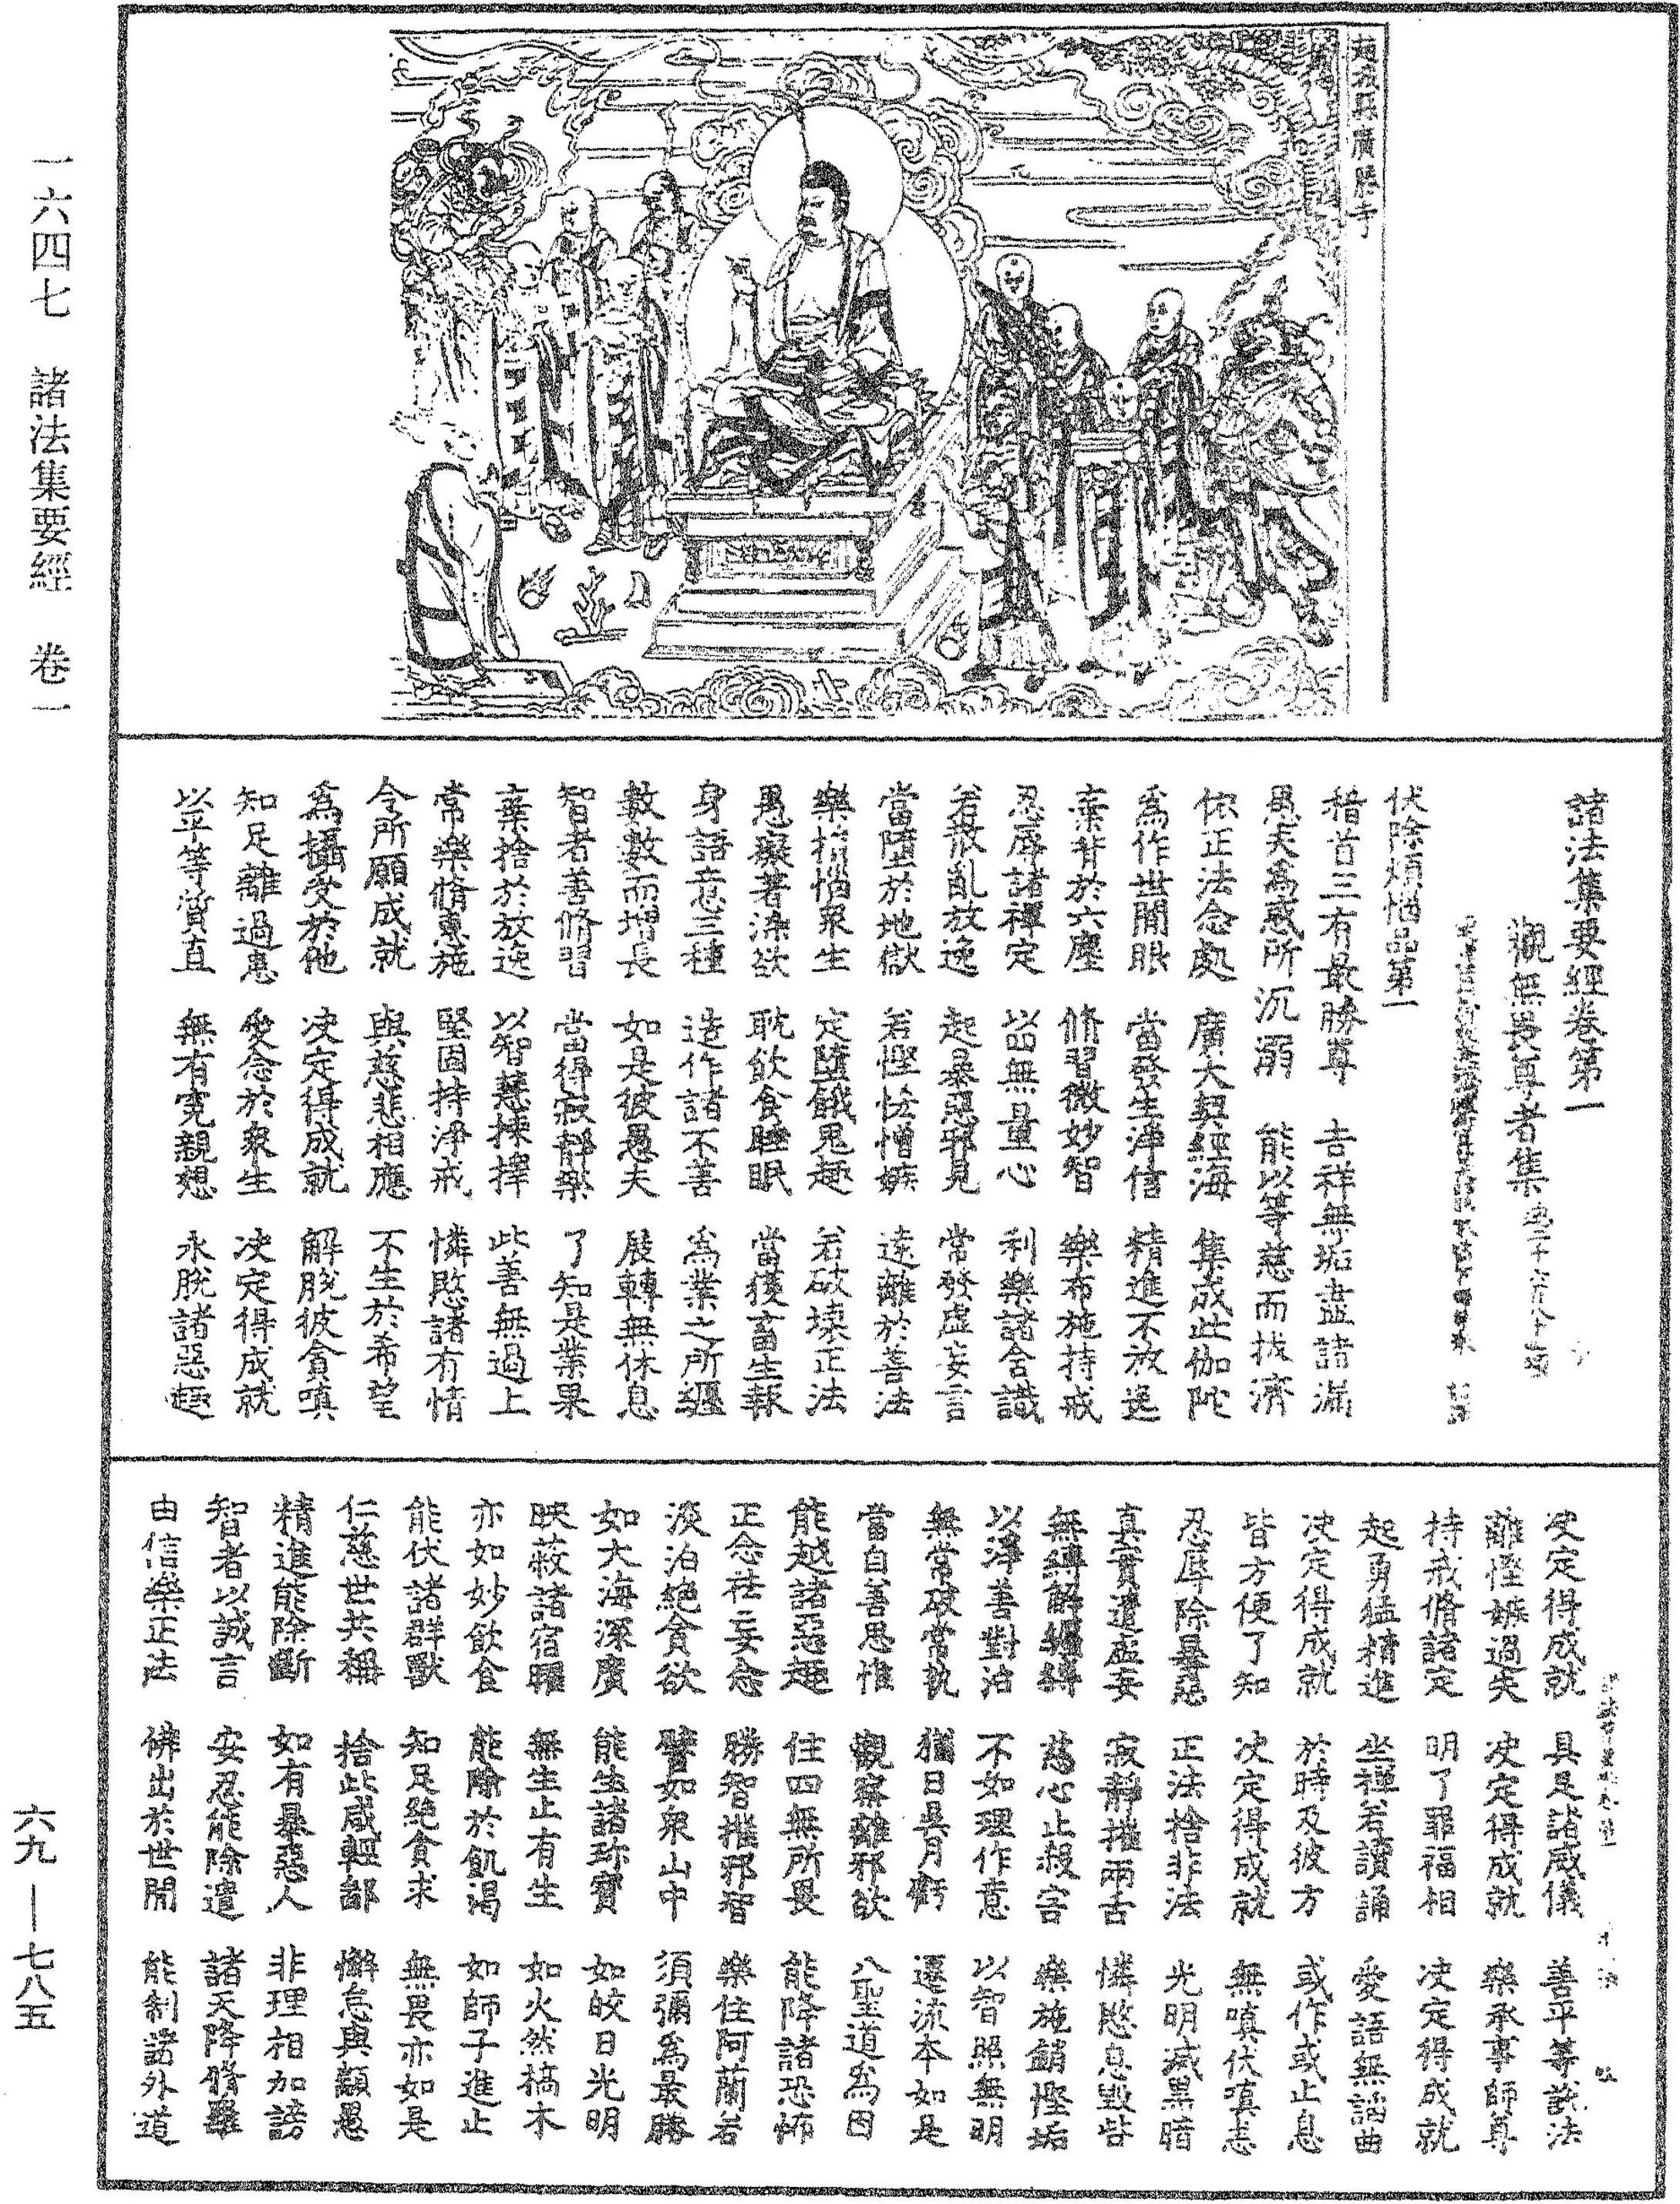 廣勝寺
諸法集要經卷第一
觀無畏尊者集
伏除煩惱品第一
稽首三有最勝尊　吉祥無垢盡諸漏
愚夫為惑所沉溺　能以等慈而拔濟
依正法念處　廣大契經海　集成此伽陀
為作世間眼　當發生淨信　精進不放逸
棄背於六塵　修習微妙智　樂布施持戒
忍辱諸禪定　以無量心　利樂諸含識
若散亂放逸　起暴惡邪見　常發虛妄言
當墮於地獄　若慳悋憎嫉　遠離於善法
樂損惱眾生　定墮餓鬼趣　若破壞正法
愚癡著染欲　耽飲食睡眠　當獲畜生報
身語意三種　造作諸不善　為業之所纏
數數而增長　如是彼愚夫　展轉無休息
智者善修習　當得寂靜樂　了知是業果
棄捨於放逸　以智慧揀擇　此善無過上
常樂脩惠施　堅固持淨戒　憐愍諸有情
令所願成就　與慈悲相應　不生於希望
為攝受於他　決定得成就　解脫彼貪嗔
知足離過患　愛念於眾生　決定得成就
以平等質直　無有冤親想　永脫諸惡趣
決定得成就　具足諸威儀　善平等說法
離慳嫉過失　決定得成就　樂承事師尊
持戒脩諸定　明了罪福相　決定得成就
起勇猛精進　坐禪若讀誦　愛語無諂曲
決定得成就　於時及彼方　或作或止息
皆方便了知　決定得成就　無嗔伏嗔恚
忍辱除暴惡　正法捨非法　光明滅黑暗
真實遣虛妄　寂靜摧兩舌　憐愍息毀呰
無縛解纏縛　慈心止殺害　樂施銷慳垢
以淨善對治　不如理作意　以智照無明
無常破常執　猶日與月虧　還流本如是
當自善思惟　觀察離邪欲　八聖道為因
能越諸惡趣　住四無所畏　能降諸恐怖
正念祛妄念　勝智摧邪智　樂住阿蘭若
淡泊絕貪欲　譬如眾山中　須彌為最勝
如大海深廣　能生諸珍寶　如皎日光明
映蔽諸宿曜　無生止有生　如火然槁木
亦如妙飲食　能除於飢渴　如師子進止
能伏諸群獸　知足絕貪求　無畏亦如是
仁慈世共稱　捨此咸輕鄙　懈怠與顓愚
精進能除斷　如有暴惡人　非理相加謗
智者以誠言　安忍能除遣　諸天降脩羅
由信樂正法　佛出於世間　能制諸外道
一六四七　諸法集要經　卷一
六九—七八五